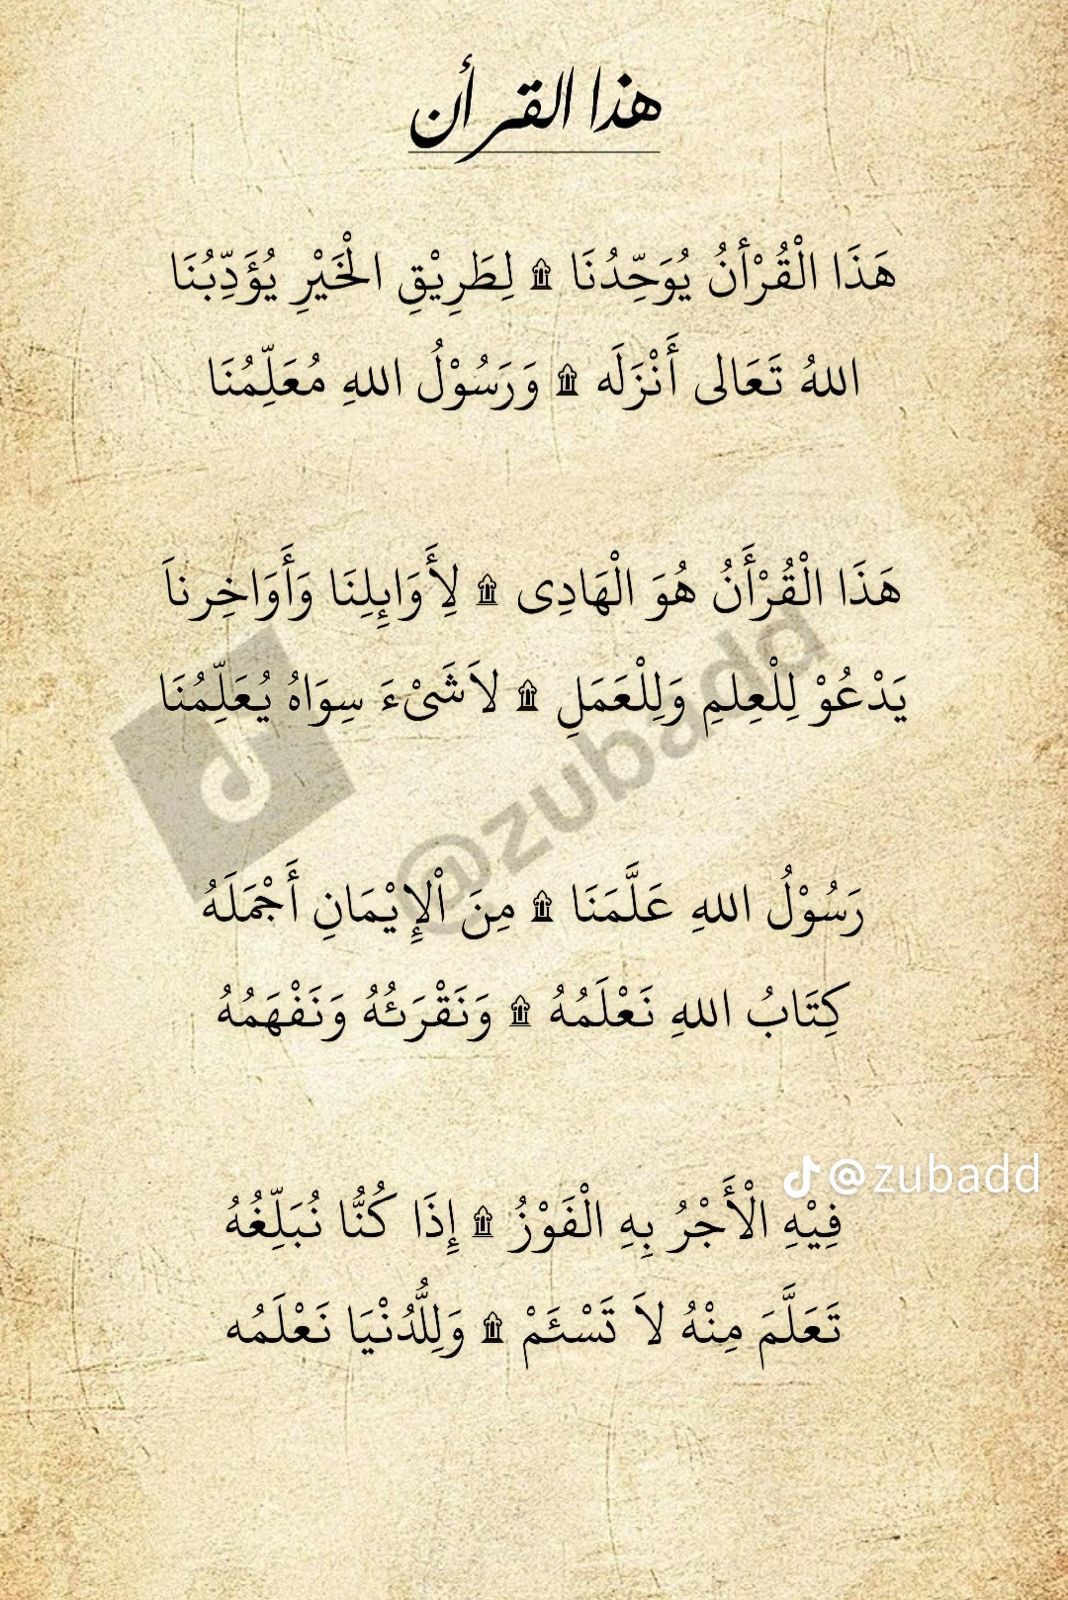 هذا القرأن
هَذَا الْقُرْأنُ يُوَحِّدُنَا ۩ لِطَرِيْقِ الْخَيْرِ يُؤَدِّبُنَا
اللهُ تَعَالى أَنْزَلَه ۩ وَرَسُوْلُ اللهِ مُعَلِّمُنَا
هَذَا الْقُرْأَنُ هُوَ الْهَادِى ۩ لِأَوَايِٕلِنَا وَأَوَاخِرِناَ
يَدْعُوْ لِلْعِلمِ وَلِلْعَمَلِ ۩ لاَشَىْءَ سِوَاهُ يُعَلِّمُنَا
@zubadd
رَسُوْلُ اللهِ عَلَّمَنَا ۩ مِنَ اْلإِيْمَانِ أَجْمَلَهُ
كِتَابُ اللهِ نَعْلَمُهُ ۩ وَنَقْرَئُهُ وَنَفْهَمُهُ
@zubadd
فِيْهِ الْأَجْرُ بِهِ الْفَوْزُ ۩ إِذَا كُنُّا نُبَلِّغُهُ
تَعَلَّمَ مِنْهُ لاَ تَسْئَمْ ۩ وَلِلُّدُنْيَا نَعْلَمُه